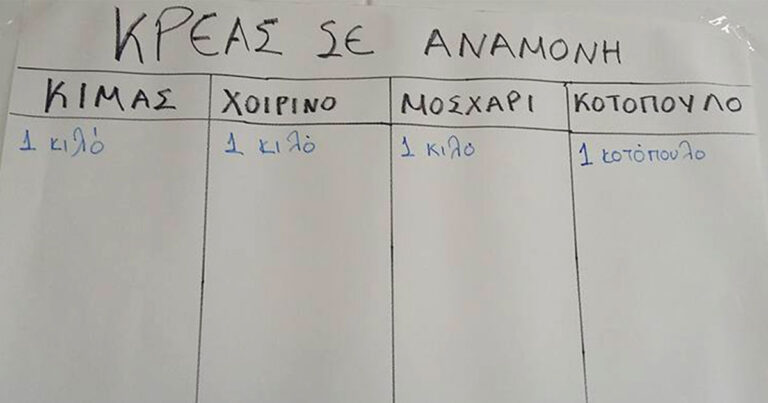 ΚΡΕΑΣ ΣΕ ΑΝΑΜΟΝΗ
ΚΙΜΑΣ ΧΟΙΡΙΝΟ ΜΟΣΧΑΡΙ ΚΟΤΟΠΟΥΛΟ
1 κιλό 1 κιλό 1 κιλό 1 κοτόπουλο